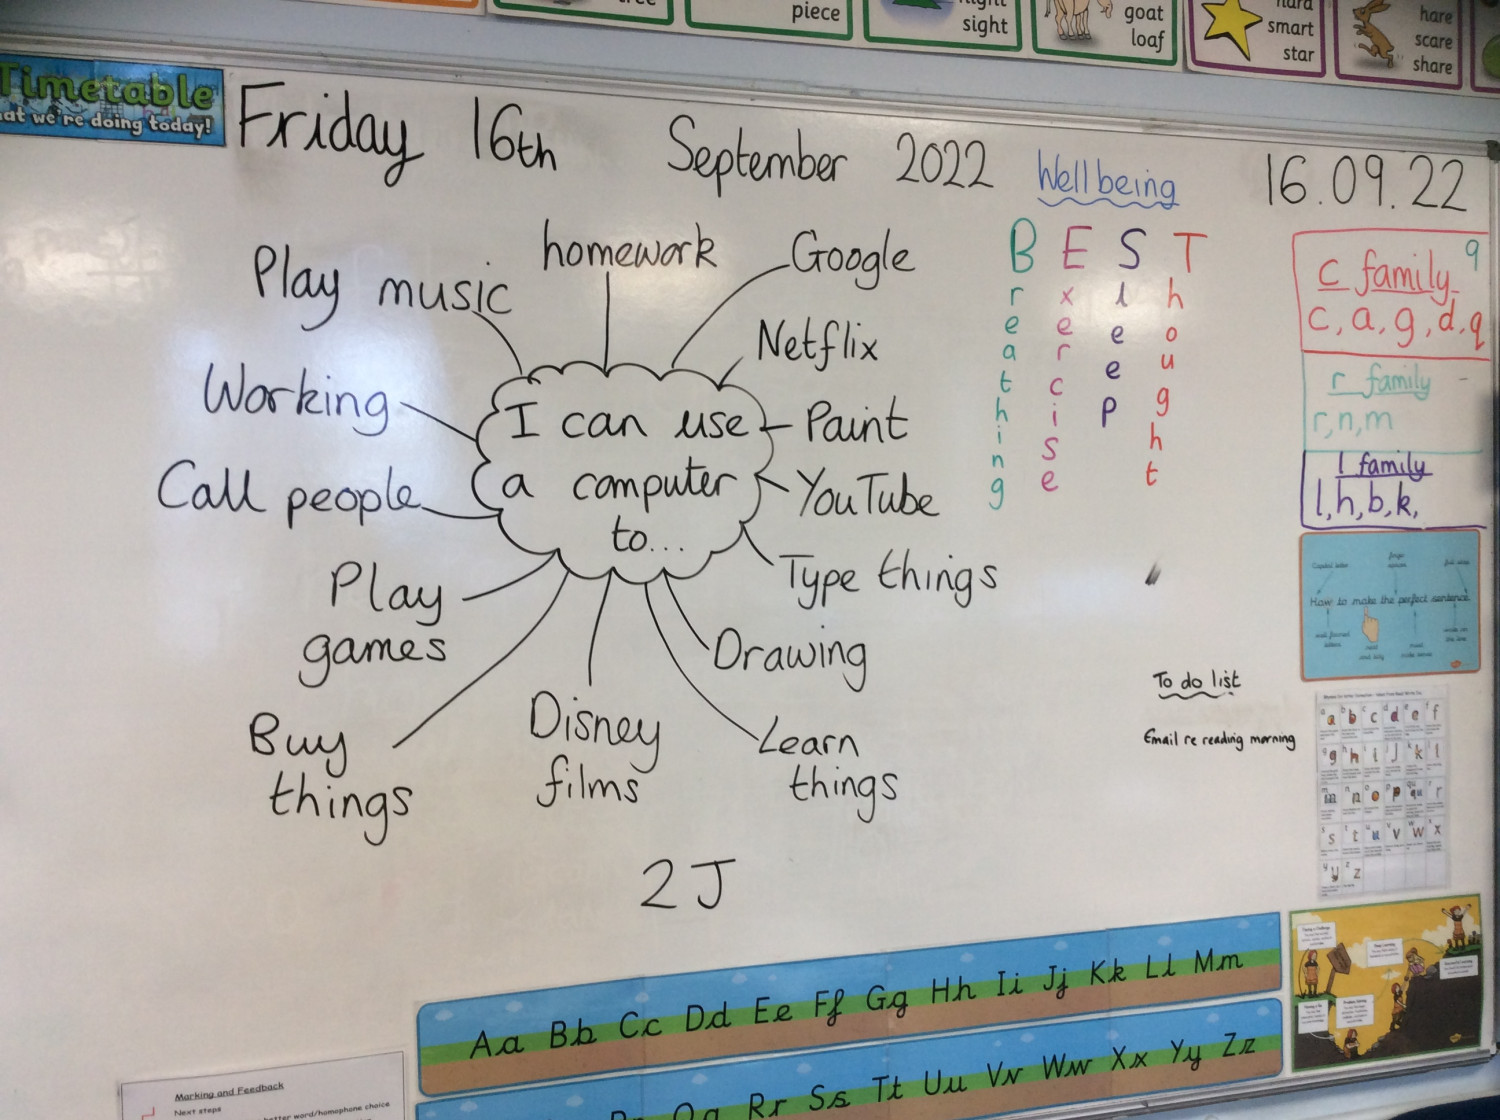 tree
piece
night
sight
goat
loaf
hard
smart
star
hare
scare
share
Timetable
at we're doing today!
Friday 16th September 2022
Wellbeing
16.09.22
BEST
Breathing
Exercise
Sleep
Thought
Play music
homework
Google
Netflix
Working
Paint
Call people
YouTube
Play
games
Type things
Drawing
Buy
things
Disney
films
Learn
things
I can use
a computer
to...
2J
9
c family
c, a, g, d, q
r family
r, n, m
l family
l, h, b, k,
How to make the perfect sentence
To do list
Email re reading morning
a b c d e f
g h i j k l
m n o p qu r
s t u v w x
y z
Aa Bb Cc Dd Ee Ff Gg Hh Ii Jj Kk Ll Mm
Qq Rr Ss Tt Uu Vv Ww Xx Yy Zz
Marking and Feedback
Next steps
better word/homophone choice